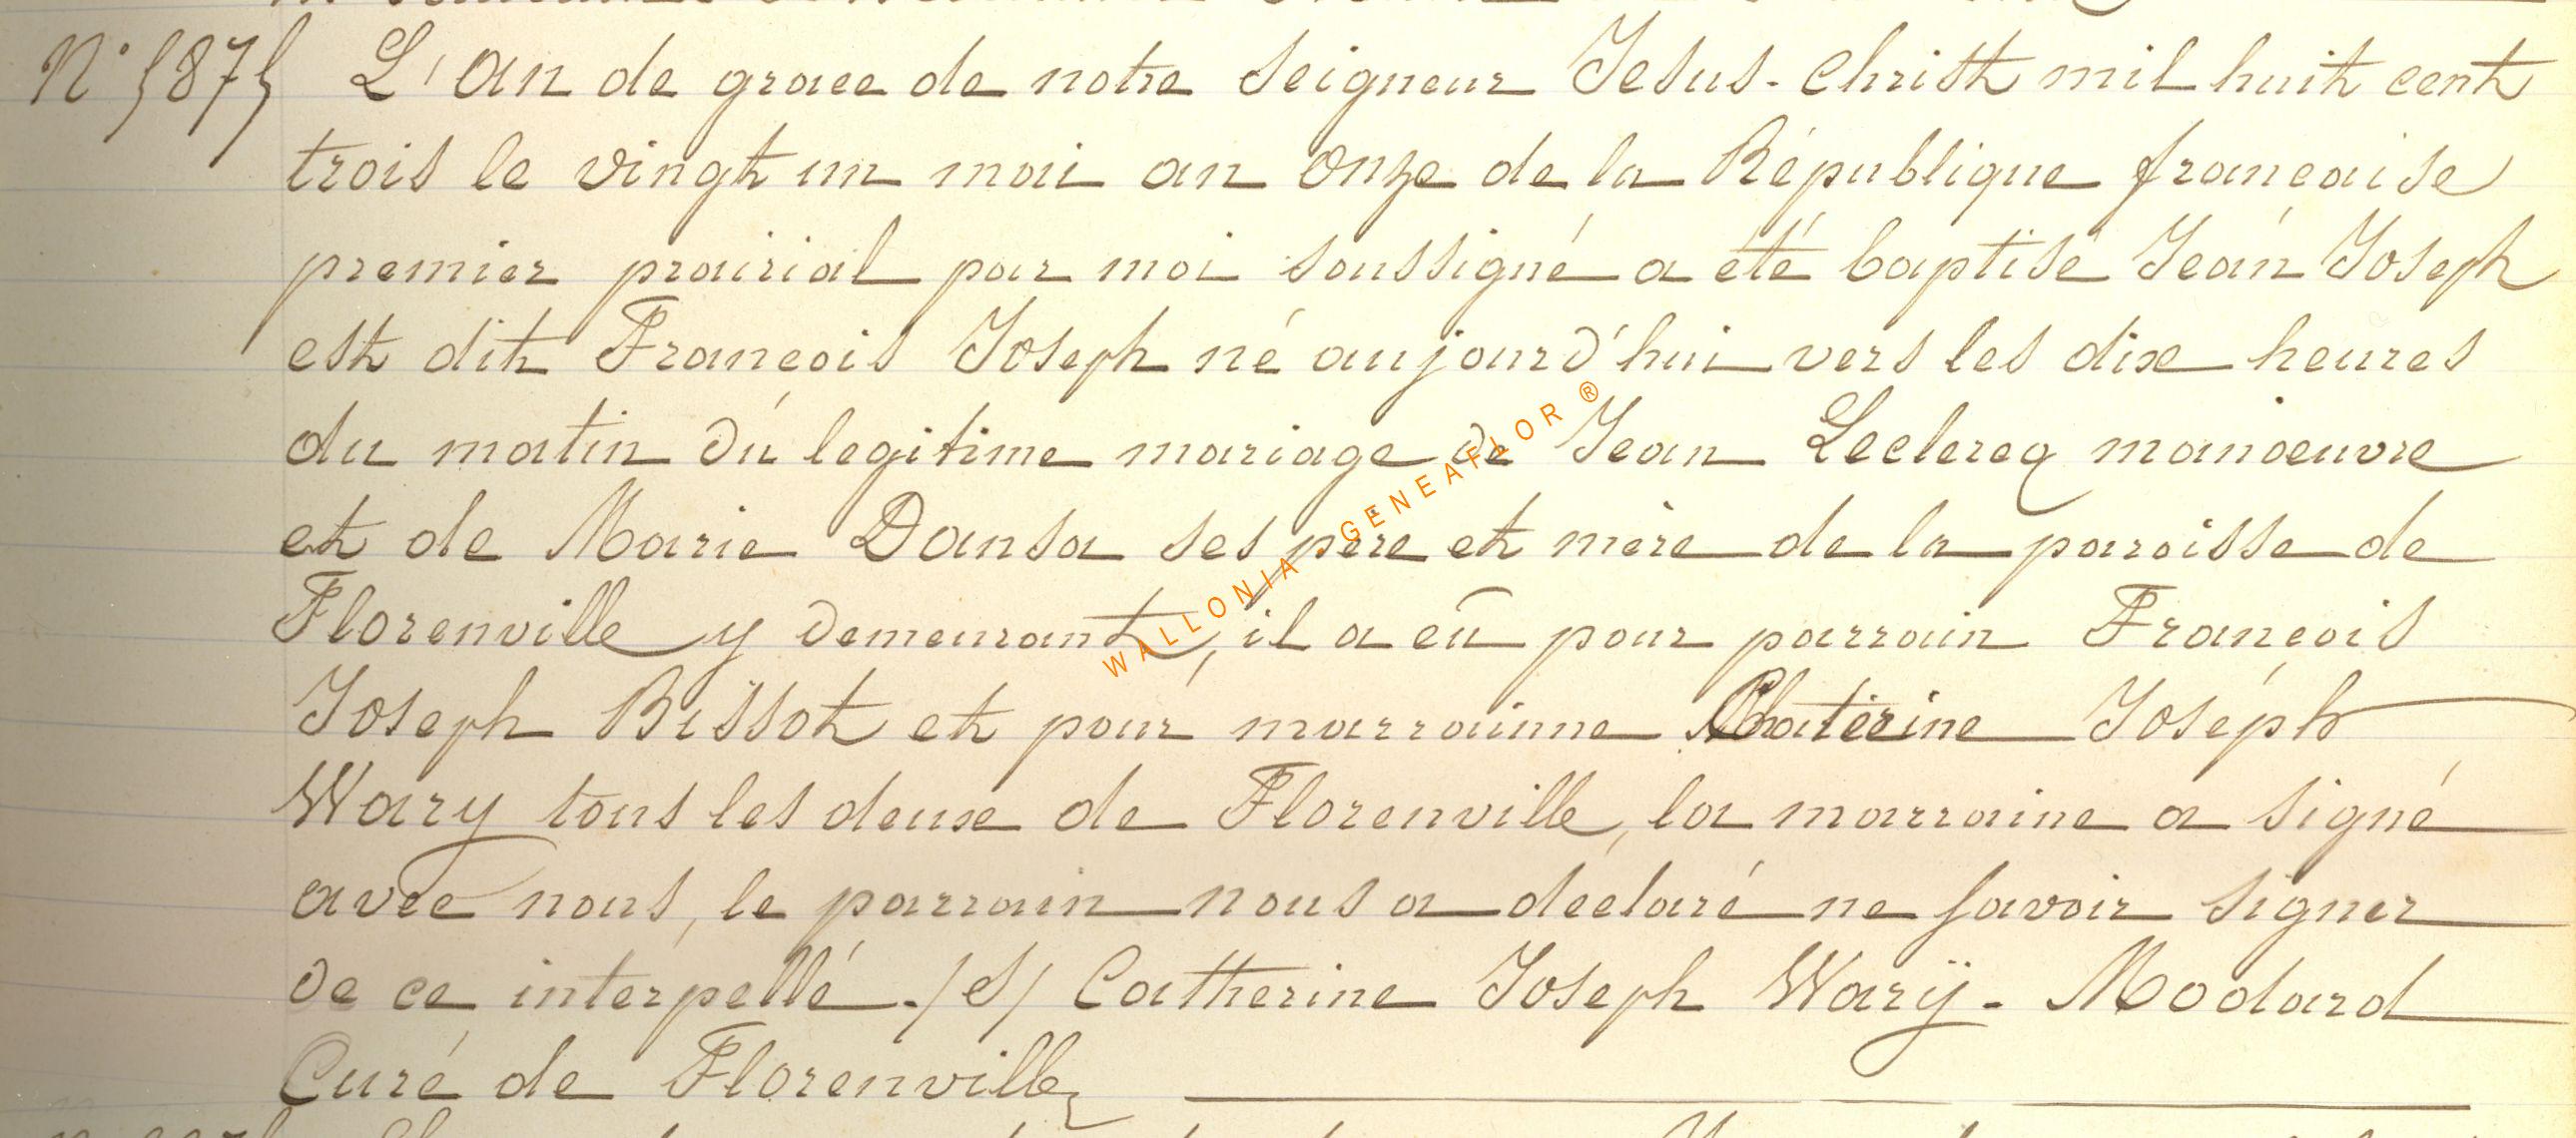 N° 5875 L'an de grace de notre Seigneur Jesus-Christ mil huit cent
trois le vingt un mai an onze de la République française
premier prairial par moi soussigné a été baptisé Jean Joseph
est dit François Joseph né aujourd'hui vers les dix heures
du matin du legitime mariage de Jean Leclercq manoeuvre
et de Marie Dansa ses père et mère de la paroisse de
Florenville y demeurant, il a eû pour parrain François
Joseph Bissot et pour marrainne Chaterine Joseph
Wary tous les deux de Florenville, la marraine a signé
avec nous, le parrain nous a déclaré ne savoir signer
de ce interpellé ./S/ Catherine Joseph Warÿ - Modard
Curé de Florenville
WALLONIA GENEAFLOR ®